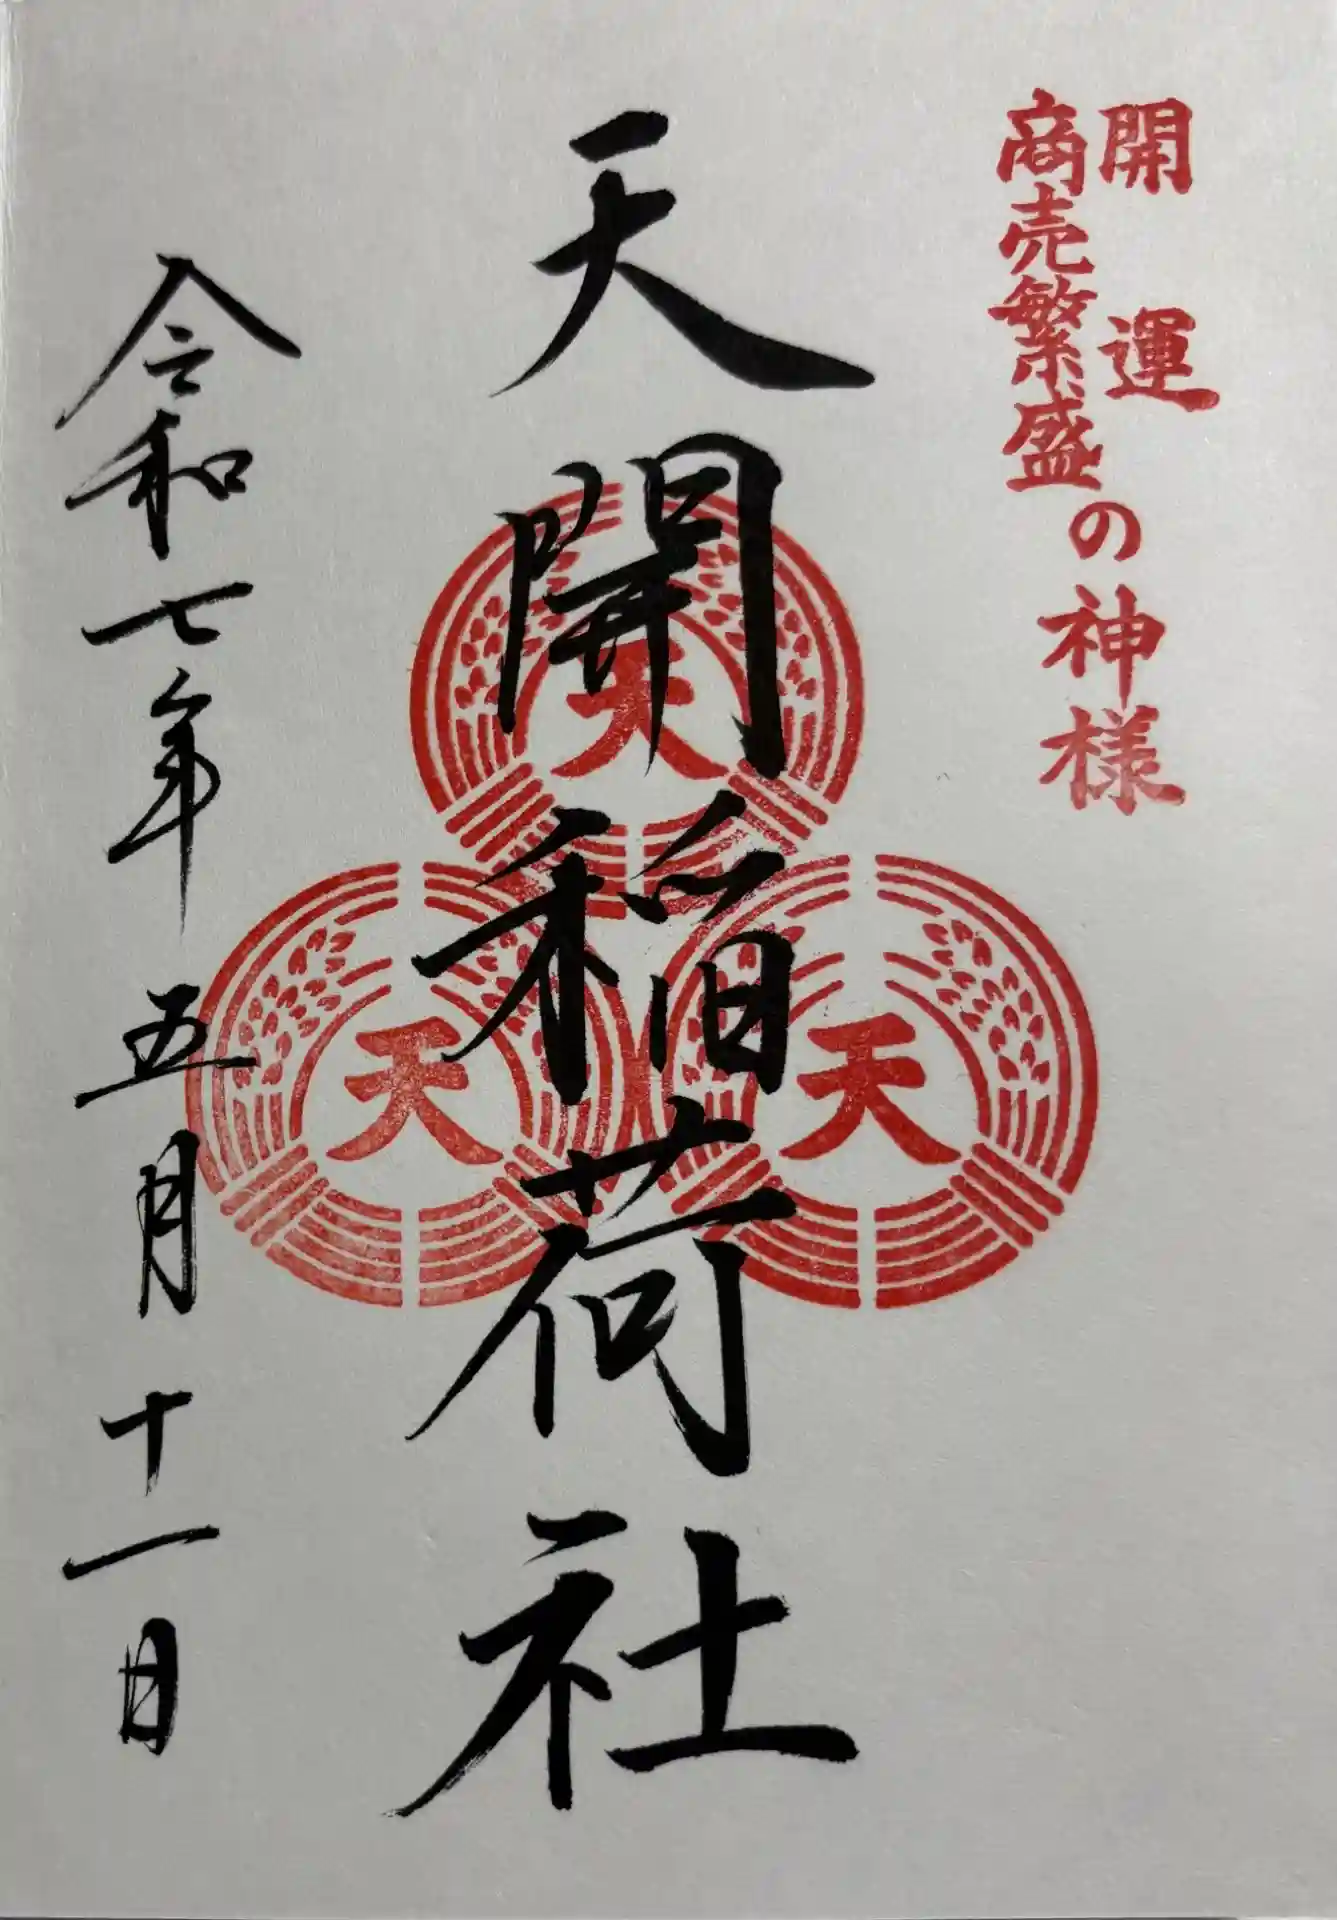 開運
商売繁盛
の神様
天開稲荷社
天
天
天
令和七年五月十一日